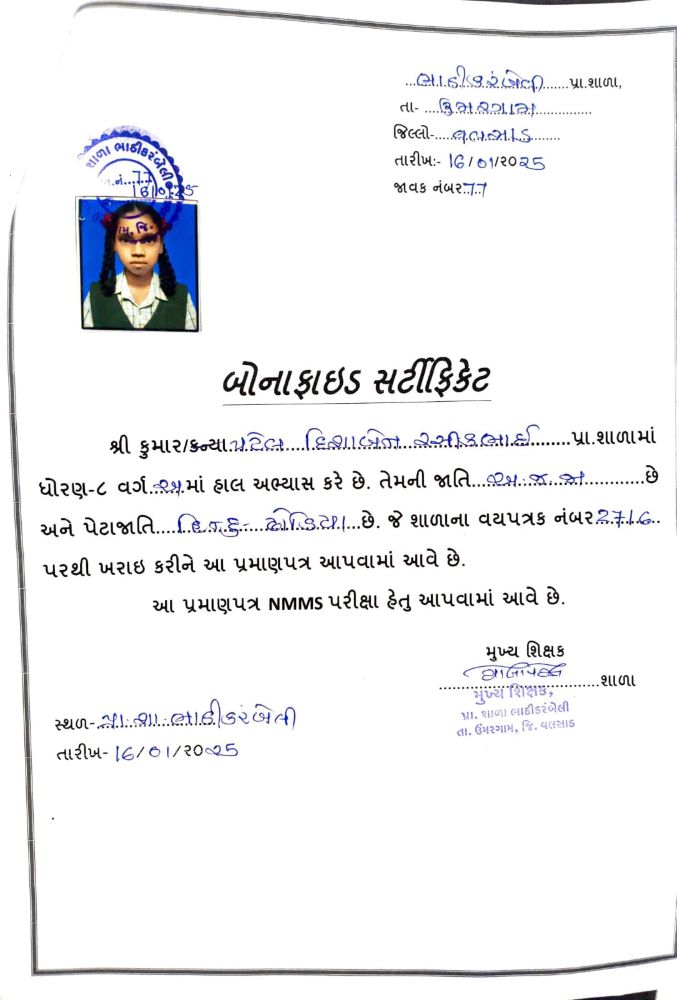 ભાઠીકરંબેલી પ્રા.શાળા,
તા- ઉમરગામ
જિલ્લો- વલસાડ
તારીખ:- 16/01/૨૦25
જાવક નંબર 77
શાળા ભાઠીકરંબેલી
નં. 77
16/01/25
બોનાફાઇડ સર્ટીફિકેટ
શ્રી કુમાર/કન્યા પટેલ દિશાબેન રસીકભાઈ પ્રા.શાળામાં
ધોરણ-૮ વર્ગ અ માં હાલ અભ્યાસ કરે છે. તેમની જાતિ અ.જ.જા છે
અને પેટાજાતિ હિન્દુ- ધોડિયા છે. જે શાળાના વયપત્રક નંબર 2716
પરથી ખરાઇ કરીને આ પ્રમાણપત્ર આપવામાં આવે છે.
આ પ્રમાણપત્ર NMMS પરીક્ષા હેતુ આપવામાં આવે છે.
મુખ્ય શિક્ષક
શાળા
મુખ્ય શિક્ષક,
પ્રા. શાળા ભાઠીકરંબેલી
તા. ઉંમરગામ, જિ. વલસાડ
સ્થળ- પ્રા.શા. ભાઠીકરંબેલી
તારીખ- 16/01/૨૦25